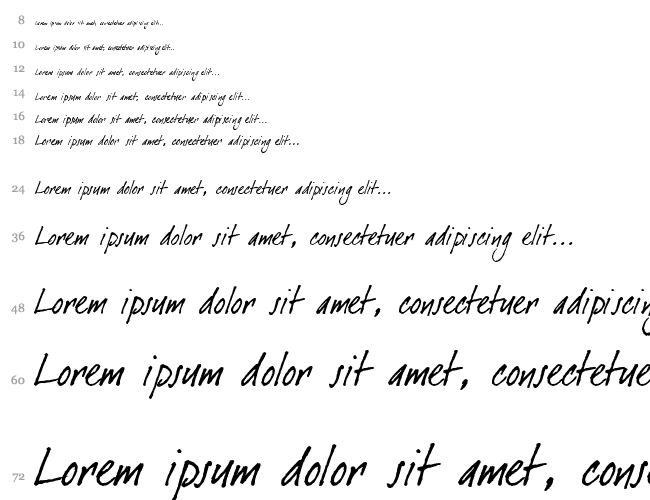 8 Lorem ipsum dolor sit amet, consectetuer adipiscing elit...
10 Lorem ipsum dolor sit amet, consectetuer adipiscing elit...
12 Lorem ipsum dolor sit amet, consectetuer adipiscing elit...
14 Lorem ipsum dolor sit amet, consectetuer adipiscing elit...
16 Lorem ipsum dolor sit amet, consectetuer adipiscing elit...
18 Lorem ipsum dolor sit amet, consectetuer adipiscing elit...
24 Lorem ipsum dolor sit amet, consectetuer adipiscing elit...
36 Lorem ipsum dolor sit amet, consectetuer adipiscing elit...
48 Lorem ipsum dolor sit amet, consectetuer adipiscing
60 Lorem ipsum dolor sit amet, consectetue
72 Lorem ipsum dolor sit amet, cons